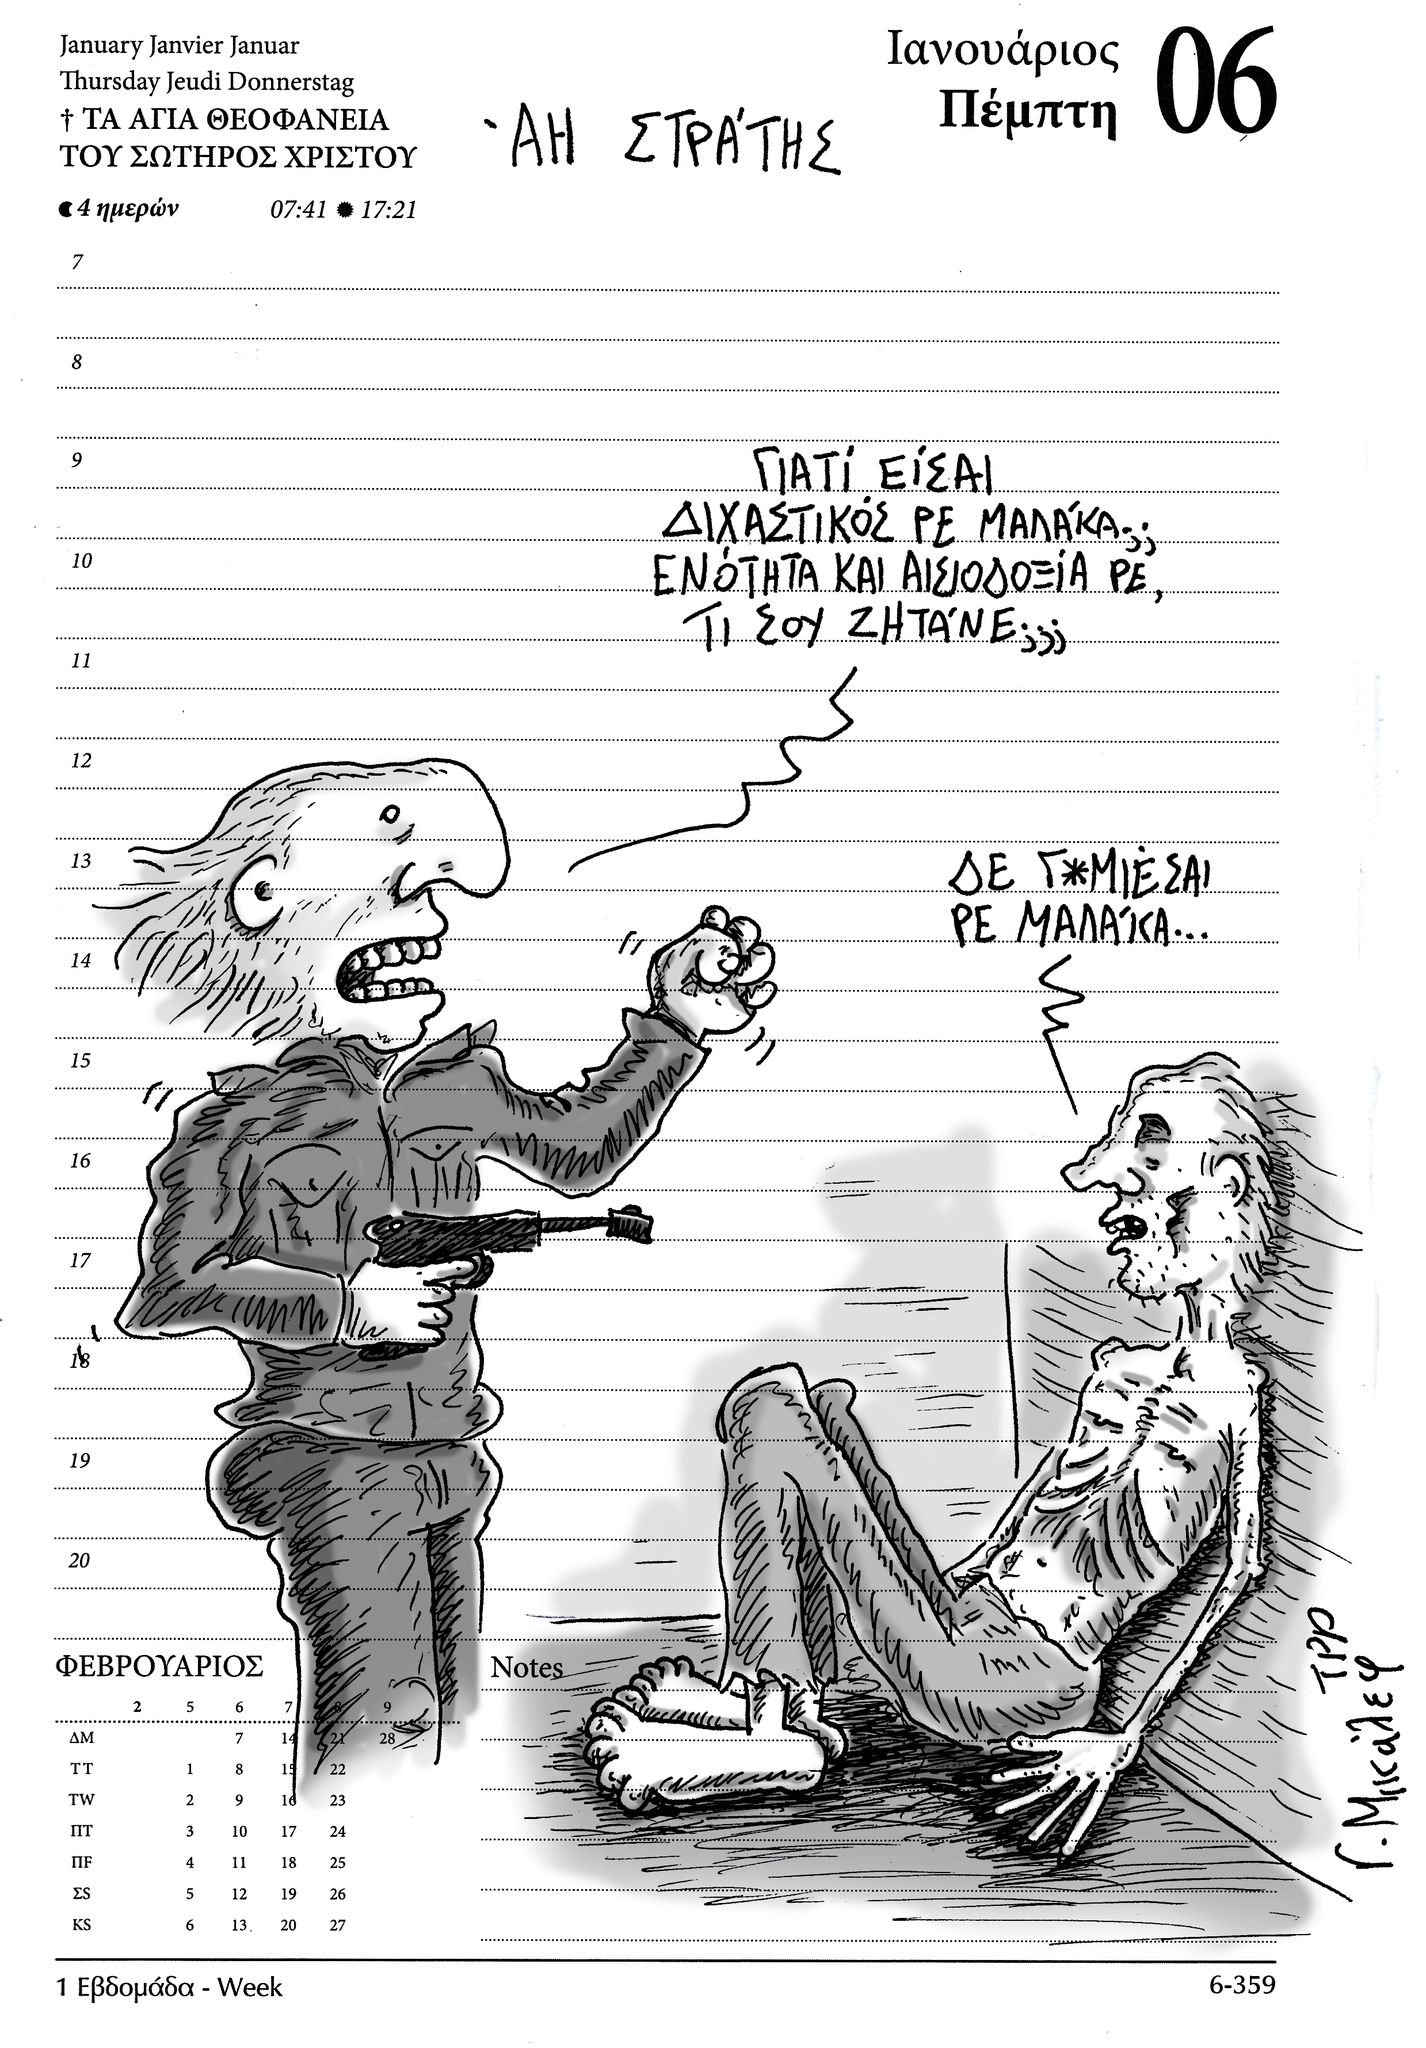 January Janvier Januar
Thursday Jeudi Donnerstag
† ΤΑ ΑΓΙΑ ΘΕΟΦΑΝΕΙΑ
ΤΟΥ ΣΩΤΗΡΟΣ ΧΡΙΣΤΟΥ
4 ημερών 07:41 17:21
ΆΗ ΣΤΡΆΤΗΣ
Ιανουάριος
Πέμπτη
06
7
8
9
ΓΙΑΤΊ ΕΊΣΑΙ
ΔΙΧΑΣΤΙΚΌΣ ΡΕ ΜΑΛΆΚΑ;;
10
ΕΝΌΤΗΤΑ ΚΑΙ ΑΙΣΙΟΔΟΞΊΑ ΡΕ,
ΤΙ ΣΟΥ ΖΗΤΆΝΕ;;;
11
12
13
ΔΕ Γ*ΜΙΈΣΑΙ
ΡΕ ΜΑΛΆΚΑ...
14
15
16
17
18
19
20
ΦΕΒΡΟΥΑΡΙΟΣ
2 5 6 7 8 9
ΔΜ 7 14 21 28
ΤΤ 1 8 15 22
TW 2 9 16 23
ΠΤ 3 10 17 24
ΠF 4 11 18 25
ΣS 5 12 19 26
KS 6 13 20 27
Notes
Γ. Μικάλεφ
1 Εβδομάδα - Week
6-359